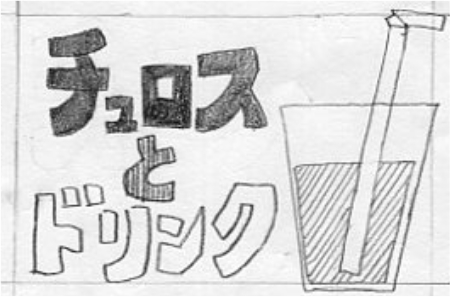 チュロス
と
ドリンク